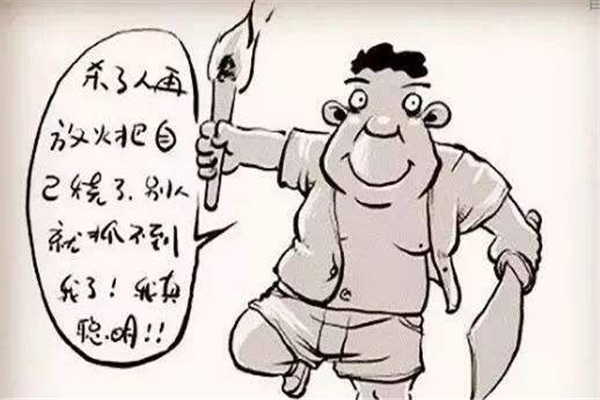 杀了人再
放火把自
己烧了,别人
就抓不到
我了!我真
聪明!!